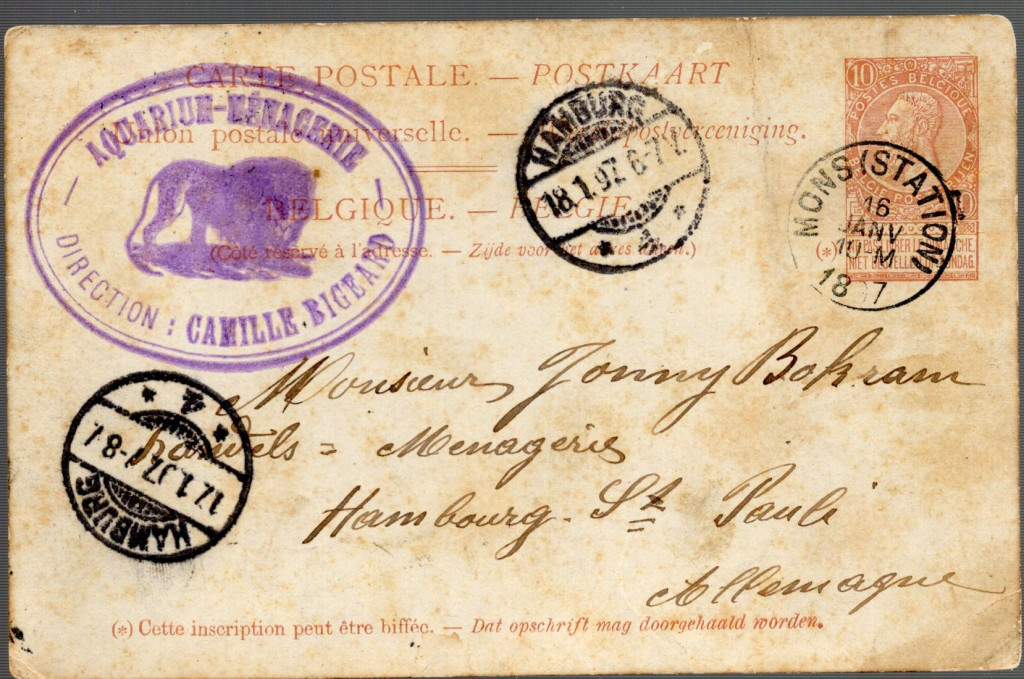 CARTE POSTALE. — POSTKAART
Union postale universelle. — postvereeniging.
BELGIQUE. — BELGIË
(Côté réservé à l'adresse. — Zijde voor het adres
AQUARIUM-MÉNAGERIE
DIRECTION : CAMILLE BIGEARD
HAMBURG
18.1.97. 6-7 N.
* 2 *
10
POSTES BELGIQUE
MONS (STATION)
16
JANV
10-M
18 7
NIET BESTELLEN ZONDAG.
(*)
Monsieur Jonny Bokram
handels = Menagerie
Hambourg - St Pauli
Allemagne
* 4 *
17.1.97. 7-8
HAMBURG
(*) Cette inscription peut être biffée. — Dat opschrift mag doorgehaald worden.